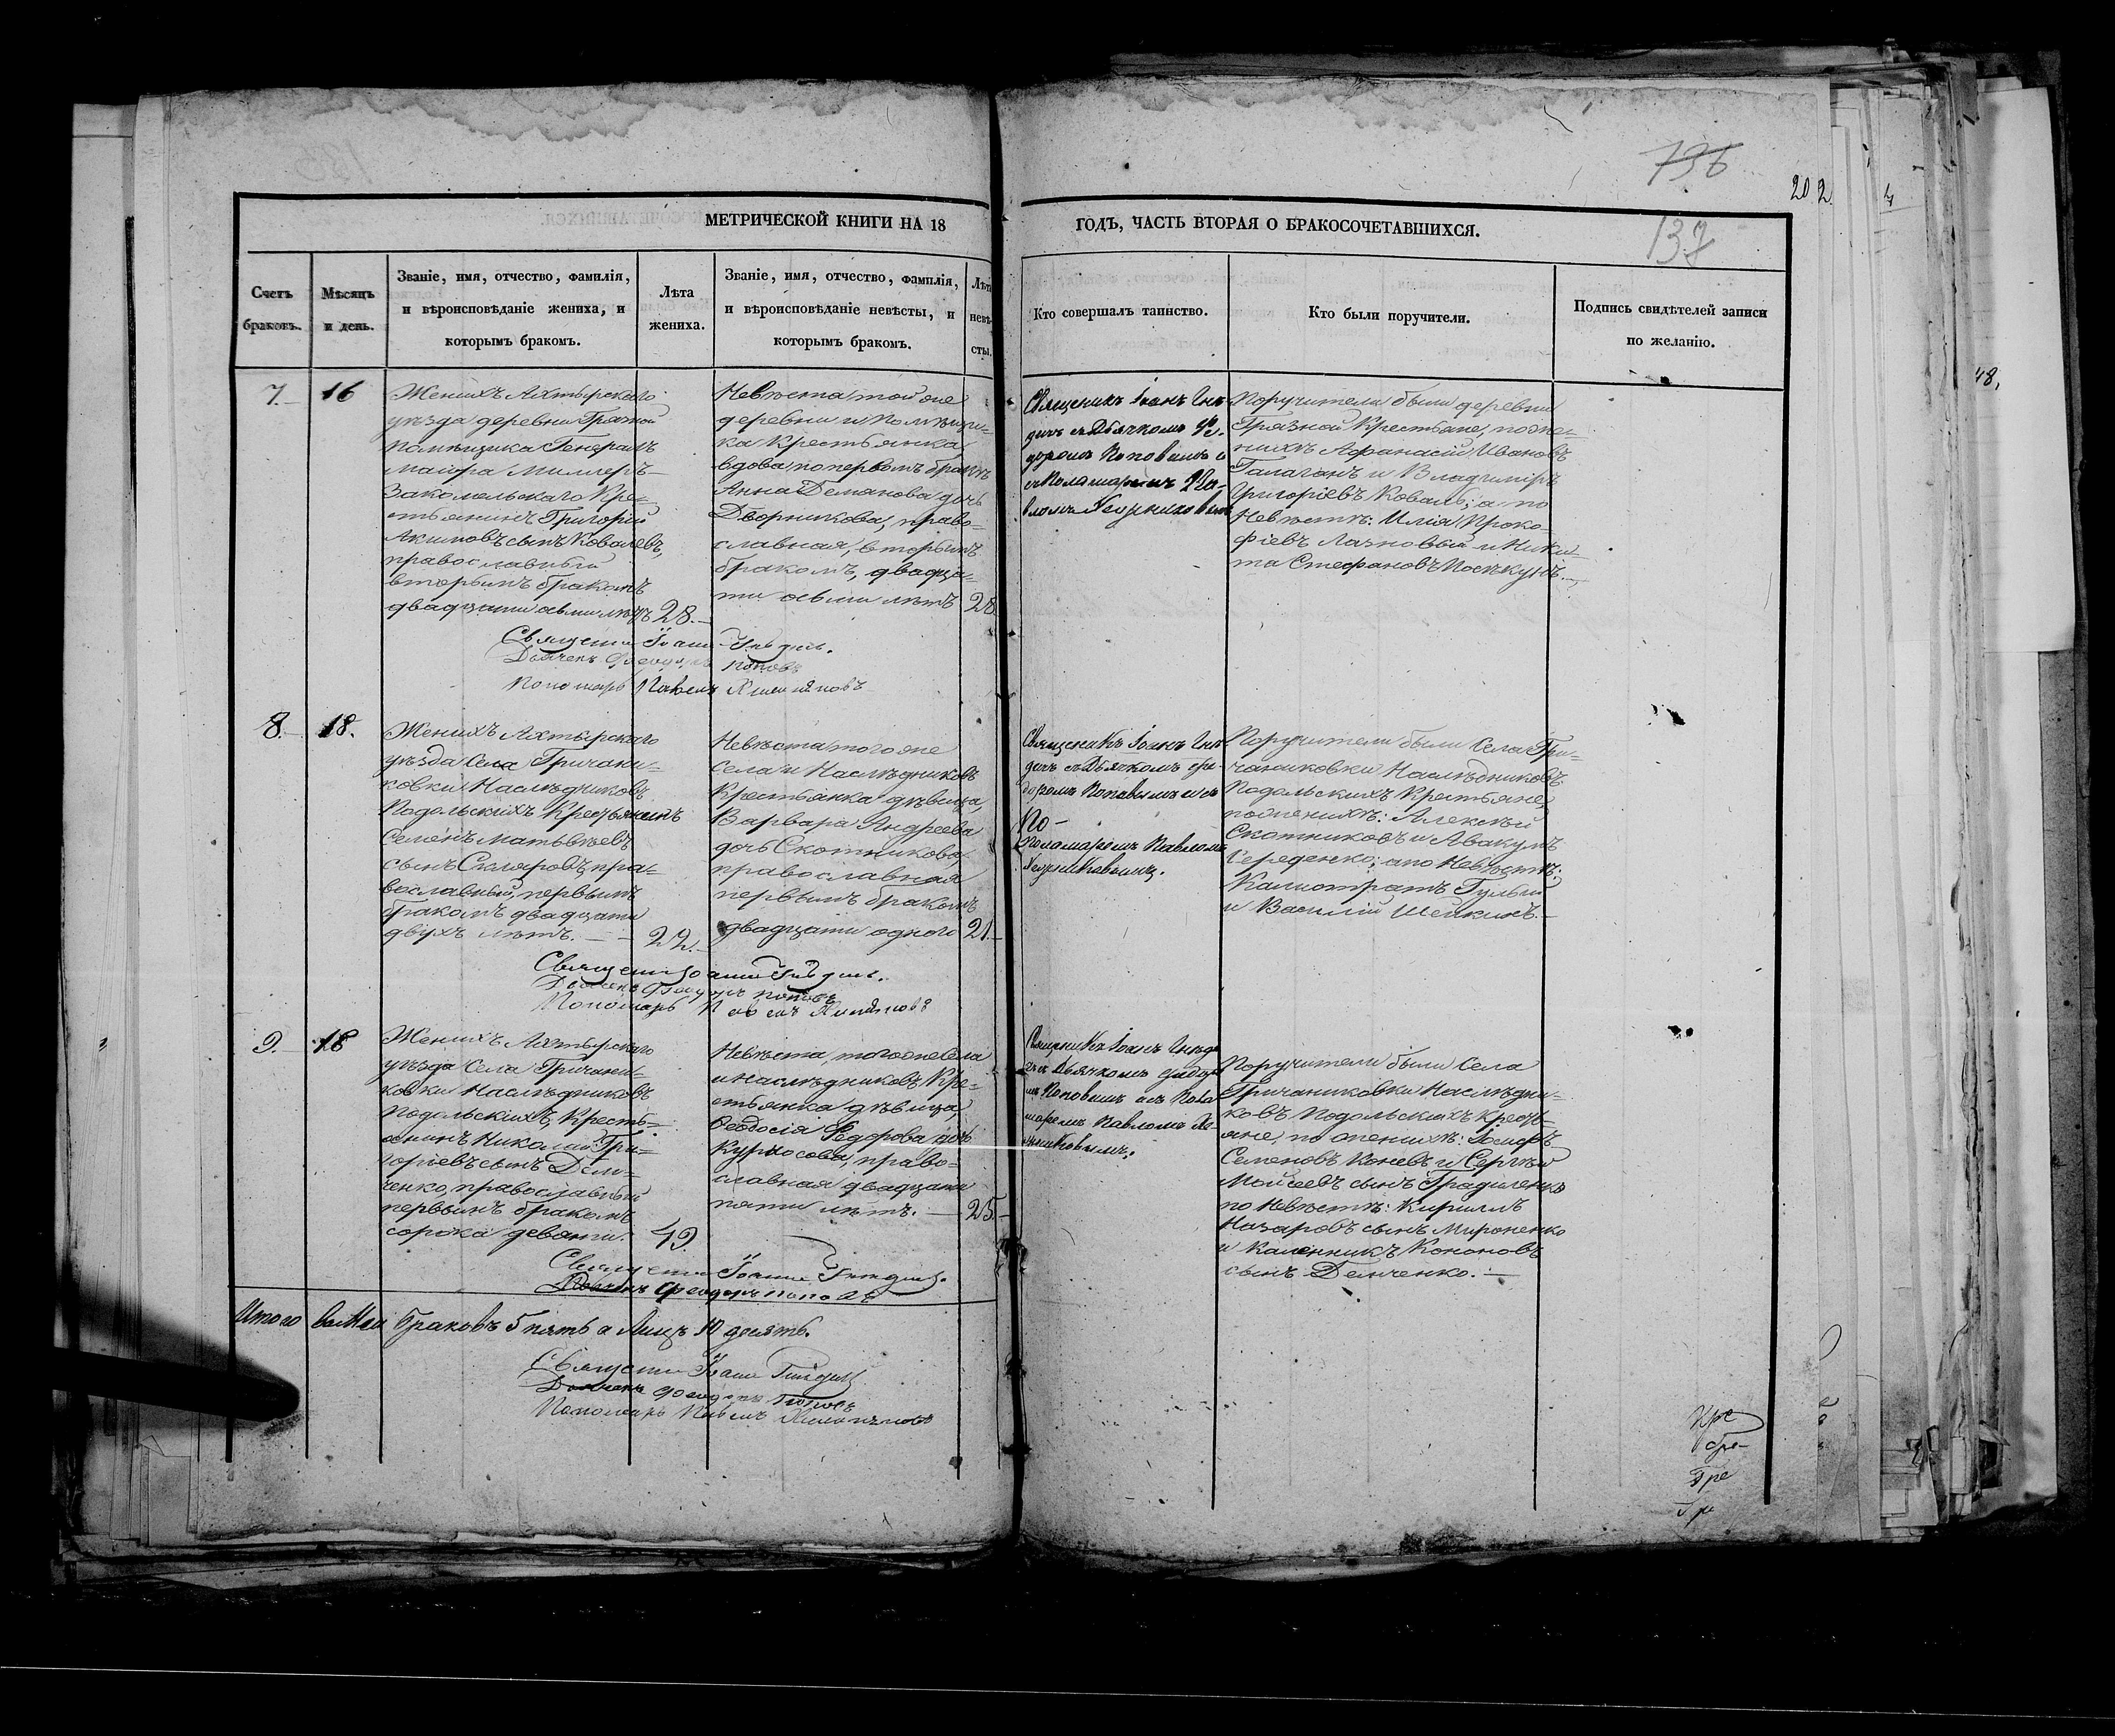 736
137
202.
4
48,
МЕТРИЧЕСКОЙ КНИГИ НА 18
ГОДЪ, ЧАСТЬ ВТОРАЯ О БРАКОСОЧЕТАВШИХСЯ.
Счетъ
браковъ.
Мѣсяцъ
и день.
Званіе, имя, отчество, фамилія,
и вѣроисповѣданіе жениха, и
которымъ бракомъ.
Лѣта
жениха.
Званіе, имя, отчество, фамилія,
и вѣроисповѣданіе невѣсты, и
которымъ бракомъ.
Лѣта
невѣ-
сты.
Кто совершалъ таинство.
Кто были поручители.
Подпись свидѣтелей записи
по желанію.
7.
16
Женихъ Ахтырскаго
уѣзда деревни Грязной
помѣщика Генералъ
маіора Миллеръ
Закомельскаго Кре-
стьянинъ Григорій
Акимовъ сынъ Ковалевъ,
православный
вторымъ бракомъ
двадцати осьми лѣтъ
28.
Невѣста той же
деревни и Помѣщи-
ка Крестьянка
вдова по первомъ бракѣ
Анна Демянова дочь
Дворникова, право-
славная, вторымъ
бракомъ, двадца-
ти осьми лѣтъ
28
Священикъ Іоанъ Гнѣ
дичъ съ Дьячкомъ Фе-
доромъ Поповымъ и
съ Поламаремъ Па-
вломъ
Поручители были деревни
Грязной Крестьяне, по же-
нихѣ Афанасій Ивановъ
Галаганъ и Владимиръ
Григоріевъ Коваль; а по
Невѣстѣ: Илія Проко-
фіевъ Лазновый и Ники-
та Стефановъ
Священ Іоаннъ Гнѣдичъ.
Дьячекъ Феодоръ Поповъ
Пономарь Павелъ
8.
18.
Женихъ Ахтырскаго
уѣзда Села Гричани-
ковки Наслѣдниковъ
Подольскихъ Крестьянинъ
Семенъ Матвѣевъ
сынъ Скляровъ, пра-
вославный, первымъ
бракомъ двадцати
двухъ лѣтъ.
22.
Невѣста того же
села и Наслѣдниковъ
Крестьянка дѣвица,
Варвара Андреева
дочь Скотникова,
православная
первымъ бракомъ
двадцати одного
21.
Священикъ Іоанъ Гнѣ
дичъ съ Дьячкомъ Фе-
доромъ Поповымъ и съ
По-
Поламаремъ Павломъ
Поручители были Села Гри-
чаниковки Наслѣдниковъ
Подольскихъ Крестьяне,
по женихѣ: Алексѣй
Скотниковъ и Авакумъ
Середенко; а по Невѣстѣ:
Калистратъ Гулый
и Василій Шейкинъ.
Священ Іоаннъ Гнѣдичъ.
Дьячекъ Феодоръ Поповъ
Пономарь Павелъ
9.
18
Женихъ Ахтырскаго
уѣзда Села Гричани-
ковки Наслѣдниковъ
Подольскихъ, Кресть-
янинъ Николай Гри-
горіевъ сынъ Дем-
ченко, православный
первымъ бракомъ
сорока девяти.
49.
Невѣста, того же Села
и наслѣдниковъ Кре-
стьянка дѣвица,
Феодосія Федорова дочь
Курносова, право-
славная двадцати
пяти лѣтъ.
25.
Священикъ Іоанъ Гнѣди
чъ съ Дьячкомъ Федоро
мъ Поповымъ и съ Пола
маремъ Павломъ
Поручители были Села
Гричаниковки Наслѣдни-
ковъ Подольскихъ Кресть-
яне, по женихѣ: Іосифъ
Семеновъ Коневъ и Сергѣй
Мойсеевъ сынъ Градиленко
по Невѣстѣ: Кириллъ
Назаровъ сынъ Мироненко
и Каленникъ Кононовъ
сынъ Демченко.
Священ Іоаннъ Гнѣдичъ.
Дьячекъ Феодоръ Поповъ
Итого въ Маи браковъ 5 пять а Лицъ 10 десять.
Священ Іоаннъ Гнѣдичъ
Дьячекъ Феодоръ Поповъ
Пономарь Павелъ